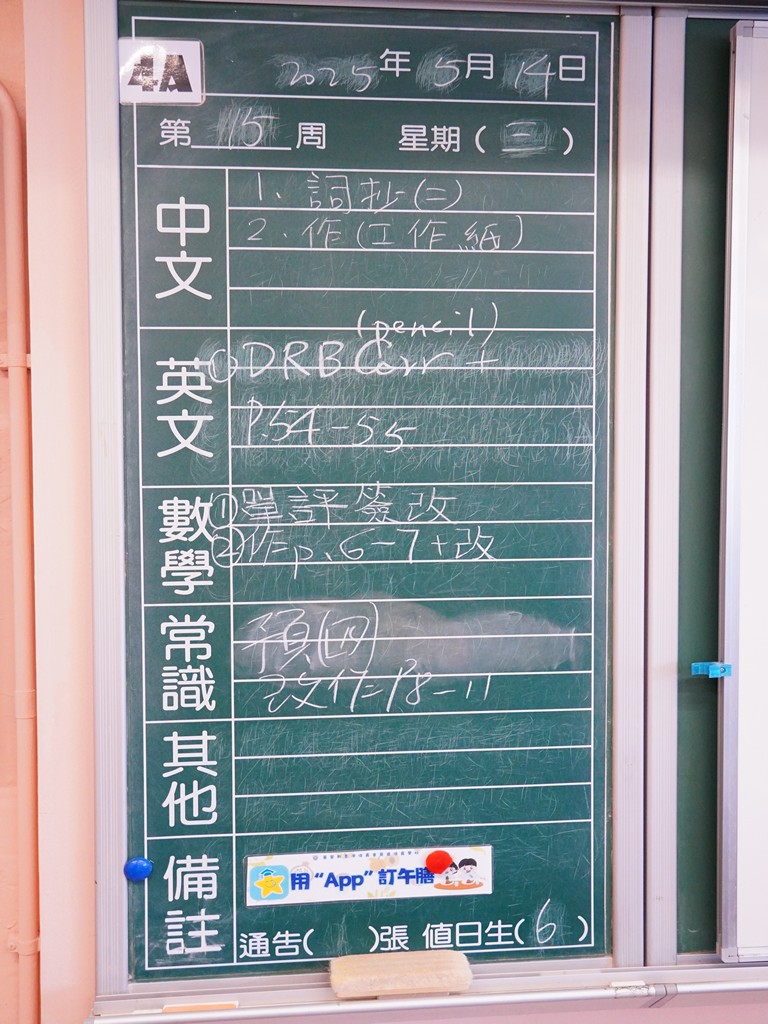 4A
2025年5月14日
第15周 星期(三)
中文
1. 詞抄(二)
2. 作(工作紙)
英文
(pencil)
① DRB Corr +
P.54-55
數學
① 單評簽改
② 作二 p.6-7+改
常識
預(四)
改作二 P8-11
其他
備註
用“App”訂午膳
通告( )張 值日生(6)